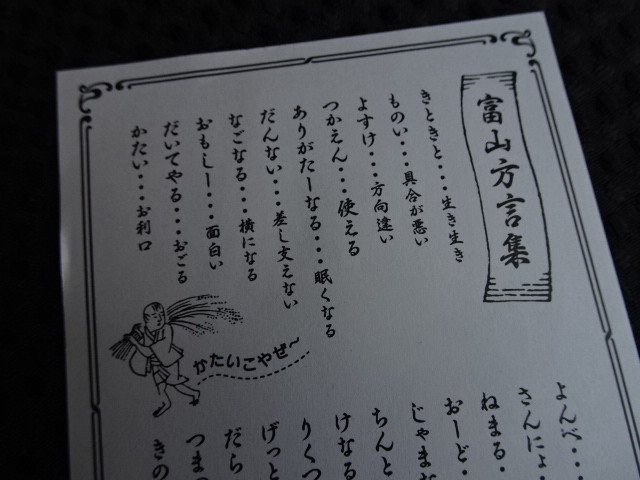 富山方言集
きときと・・・生き生き
ものい・・・・具合が悪い
よすけ・・・・方向違い
つかえん・・・使える
ありがたーなる・・・眠くなる
だんない・・・・差し支えない
なごなる・・・横になる
おもしー・・・・面白い
だいてやる・・・おごる
かたい・・・お利口
かたいこやぜ～
よんべ・・・
さんにょ・
ねまる・
おーど・
じゃまな
ちんと
けなる
りくつ
げっと
だら
つまつ
きの